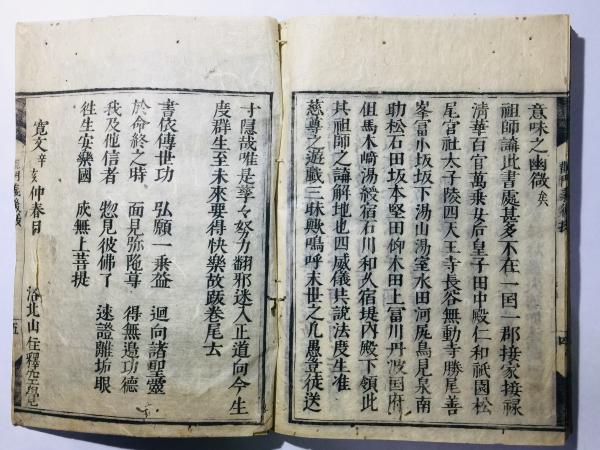 意味之幽微矣
祖師講此書處甚多不在一国一郡接家接祿
清華百官萬乗女后皇子田中殿仁和祇園松
尾官社太子陵四天王寺長谷無動寺勝尾善
峯冨小坂坂下湯山湯室水田河尻鳥見泉南
助松石田坂本堅田仰木田上冨川丹波国府
但馬木崎湯綬宿石川和久宿堤内殿下領此
其祖師之講解地也四威儀共說法度生准
慈尊之遊戯三昧歟嗚呼末世之凡愚豈徒送
寸隠哉唯是孳々努力翻邪迷入正道向今生
度群生至未來要得快樂故跋卷尾云
書依傳世功 弘願一乗益 迴向諸聖靈
於命終之時 面見弥陁尊 得無邉功德
我及他信者 惣見彼佛了 速證離垢眼
徃生安樂國 成無上菩提
寛文辛亥仲春日
洛北山住釋空
五